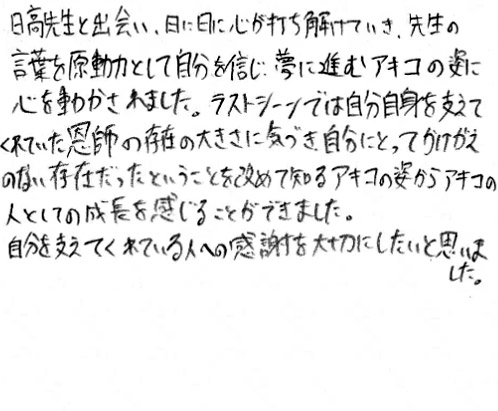 日高先生と出会い、日に日に心が打ち解けていき、先生の
言葉を原動力として自分を信じ夢に進むアキコの姿に
心を動かされました。ラストシーンでは自分自身を支えて
くれていた恩師の存在の大きさに気づき自分にとってかけがえ
のない存在だったということを改めて知るアキコの姿からアキコの
人としての成長を感じることができました。
自分を支えてくれている人への感謝を大切にしたいと思いま
した。